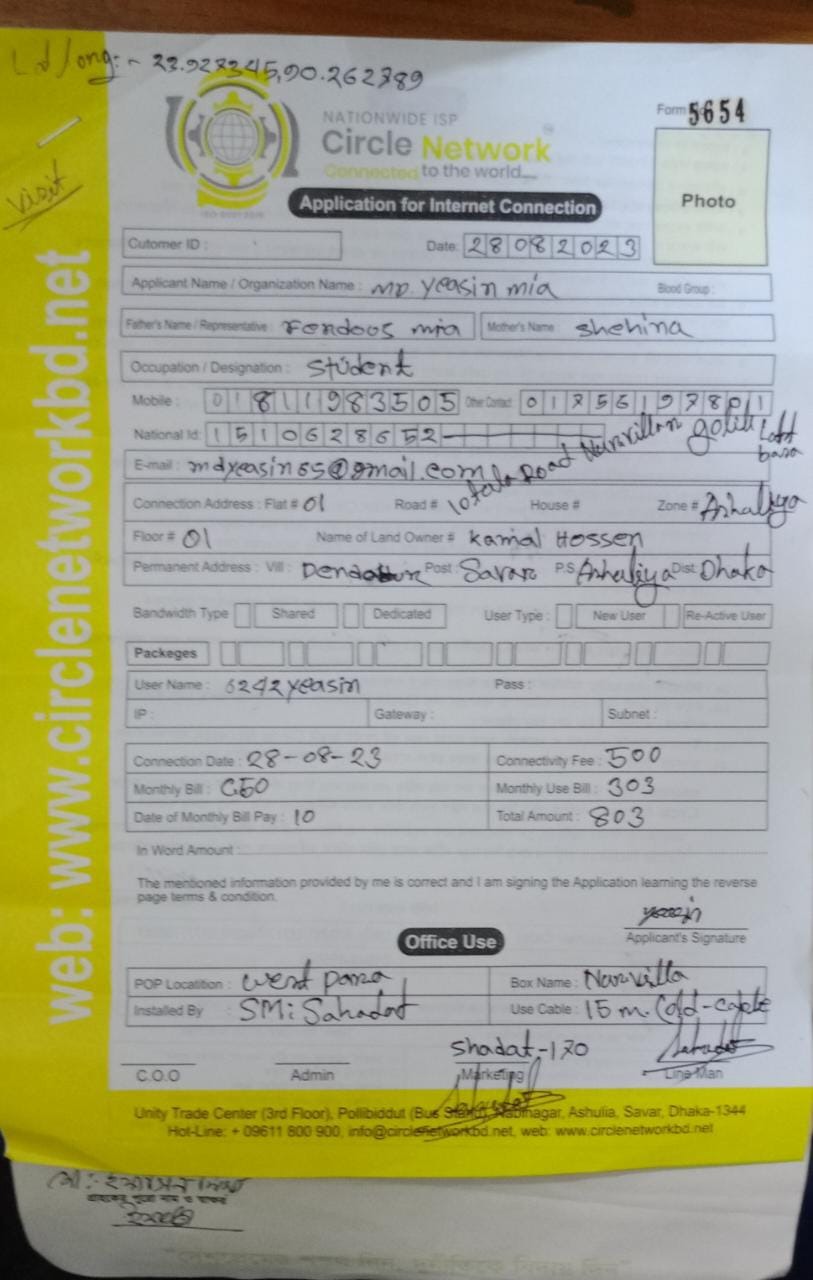 Lat/long:- 23.927345,90.262789
NATIONWIDE ISP
Circle Network
Connected to the world...
Form 5654
Photo
visit
Application for Internet Connection
Cutomer ID :
Date: 28082023
Applicant Name / Organization Name : MD. Yeasin mia Blood Group :
Father's Name / Representative : Ferdoos mia Mother's Name Shehina
Occupation / Designation : Student
Mobile : 01811983505 Other Contact:
National Id: 1510628652
E-mail : mdyeasin65@gmail.com
Connection Address : Flat # 01 Road # 10tala Road Nurvillar goliti House # Zone # Ashaliya
Floor # 01 Name of Land Owner # Kamal Hossen
Permanent Address : Vill : Post: Savar P.S Ashaliya Dist: Dhaka
Bandwidth Type Shared Dedicated User Type : New User Re-Active User
Packeges
User Name : 6242yeasin Pass :
IP : Gateway : Subnet :
Connection Date : 28-08-23 Connectivity Fee : 500
Monthly Bill : Monthly Use Bill : 303
Date of Monthly Bill Pay : 10 Total Amount : 803
In Word Amount :
The mentioned information provided by me is correct and I am signing the Application learning the reverse
page terms & condition.
Applicant's Signature
Office Use
POP Locatition : west para Box Name : Nurvilla
Installed By : SM: Sahadat Use Cable : 15 m. Cold-cable
Shadat-170
C.O.O Admin Marketing Line Man
Unity Trade Center (3rd Floor), Pollibiddut (Bus Stand), Nabinagar, Ashulia, Savar, Dhaka-1344
Hot-Line: + 09611 800 900, info@circlenetworkbd.net, web: www.circlenetworkbd.net
web: www.circlenetworkbd.net
গ্রাহকের পুরো নাম ও স্বাক্ষর